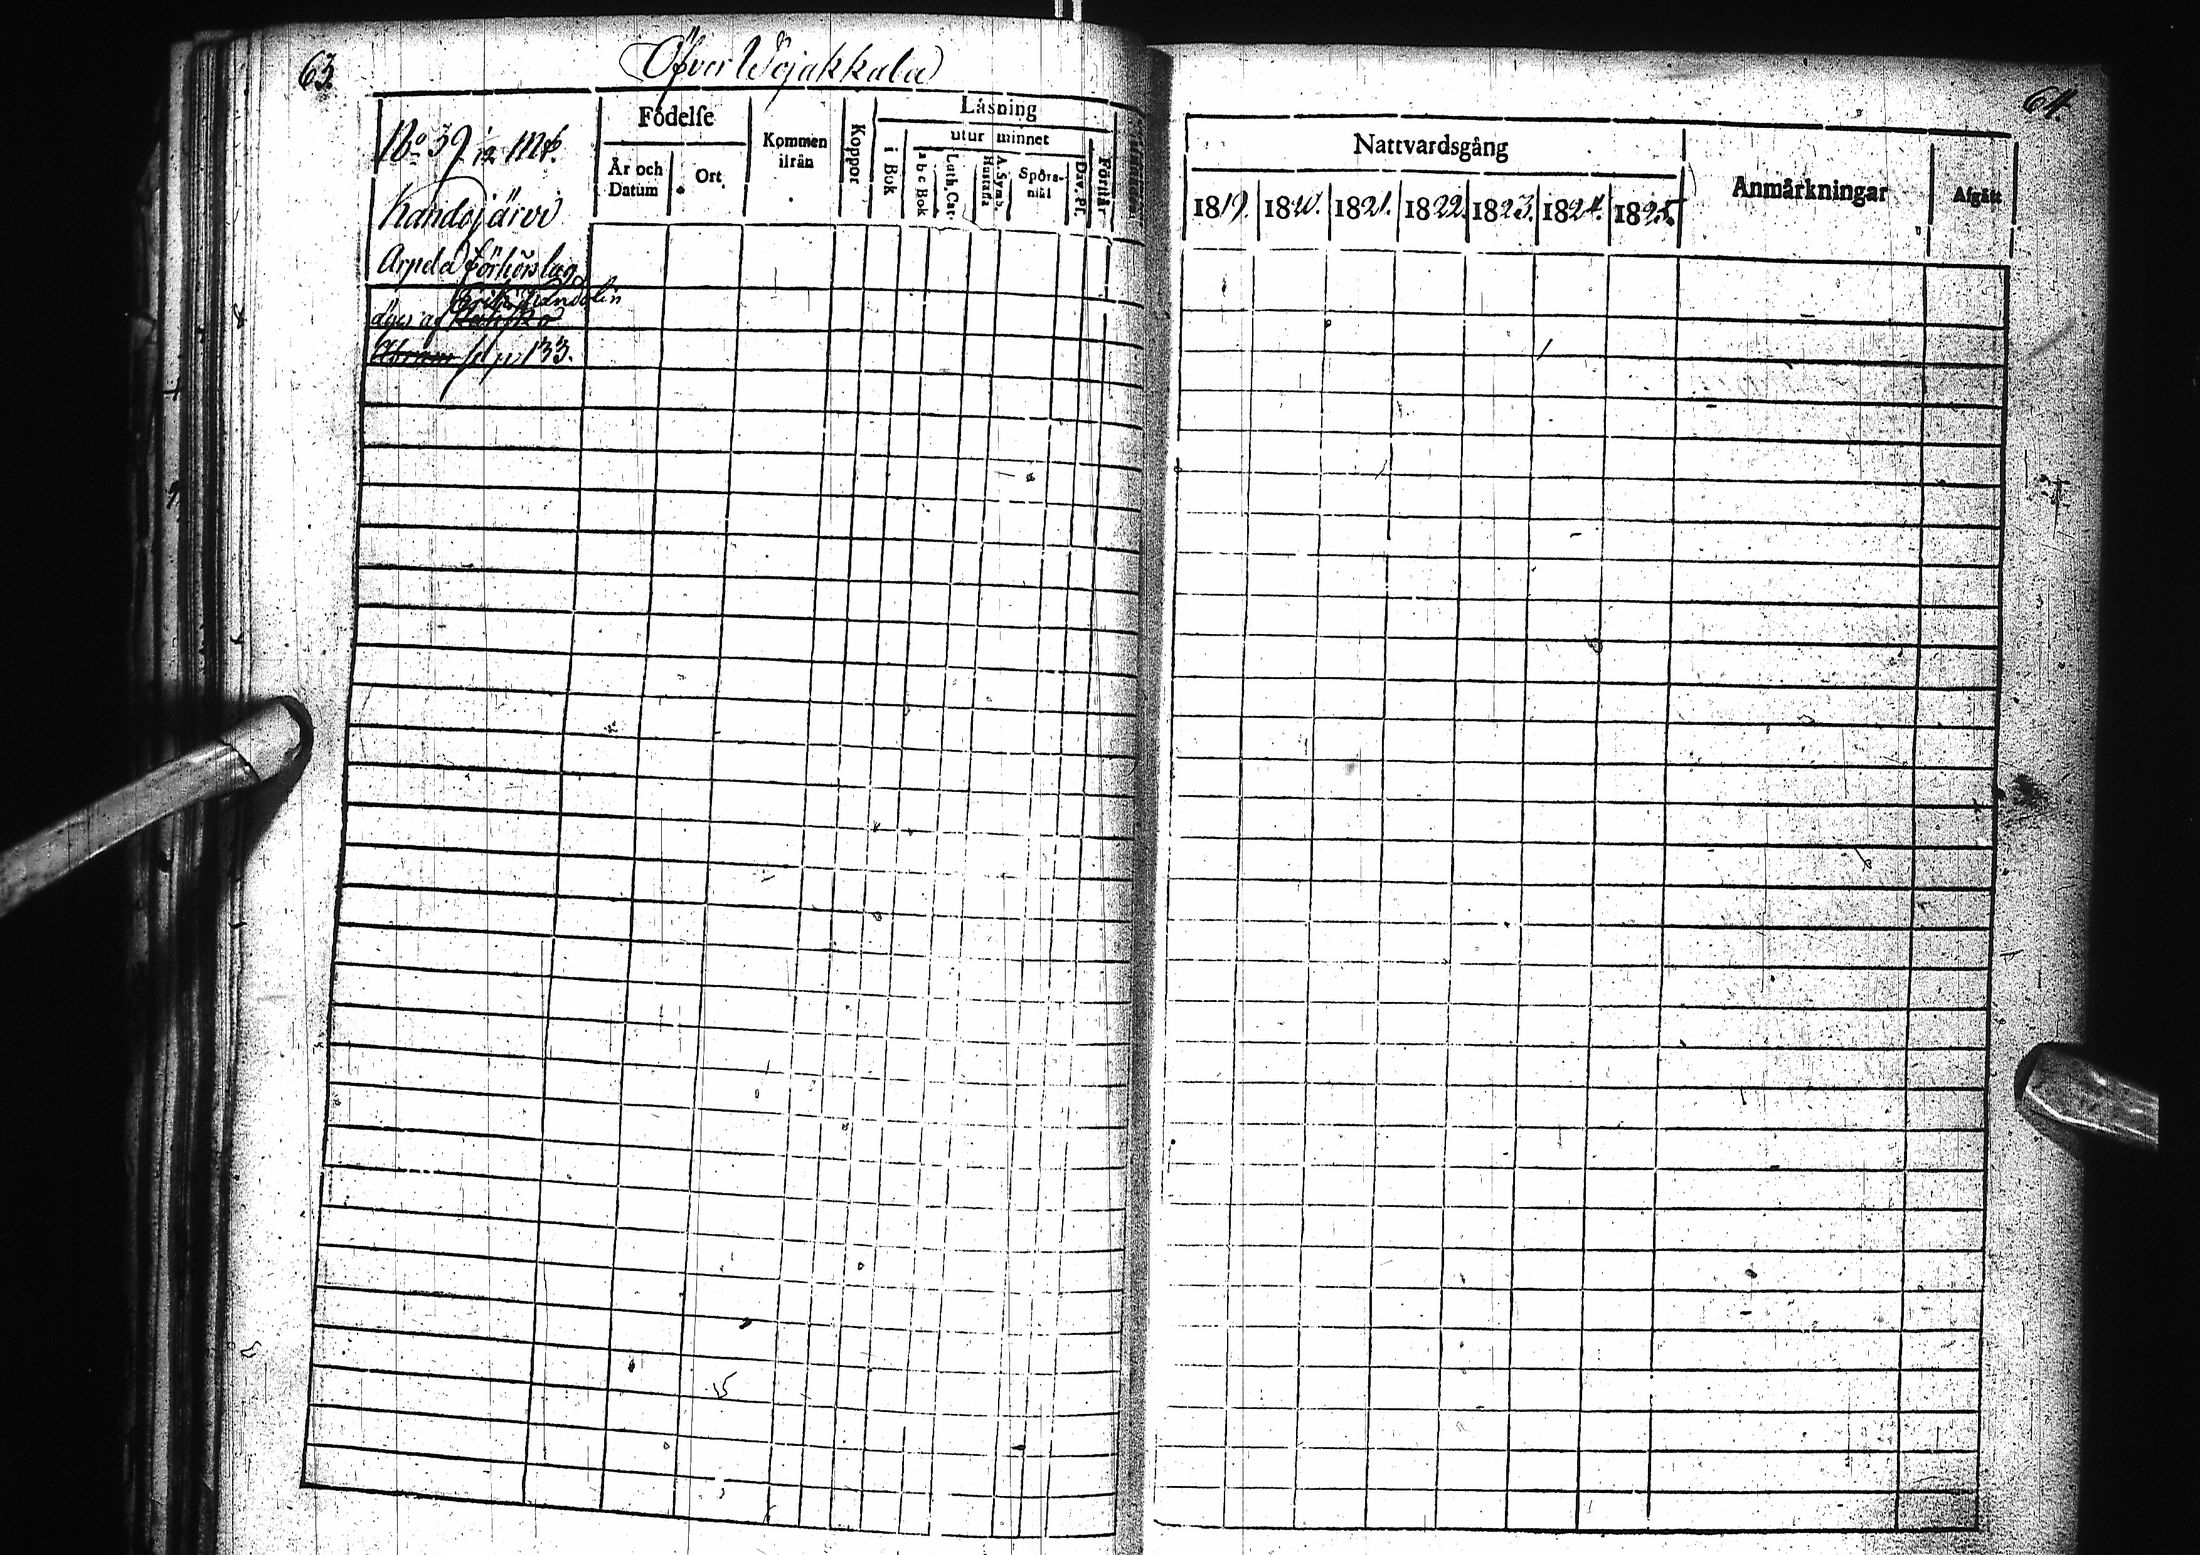 63.
Öfver Wojakkala
No 39. 1/12 Mtl.
Kandojärvi
Arpela förhörslag
Erik Kandolin
äges af
Abram se p. 133.
Födelse
År och Datum
Ort
Kommen ifrån
Koppor
Läsning
i Bok
utur minnet
a b c Bok
Luth. Cat.
A. Symb. Hustafla
Spörs-mål
Dav. Ps.
Förstår
64.
Nattvardsgång
1819. 1820. 1821. 1822. 1823. 1824. 1825.
Anmärkningar
Afgått